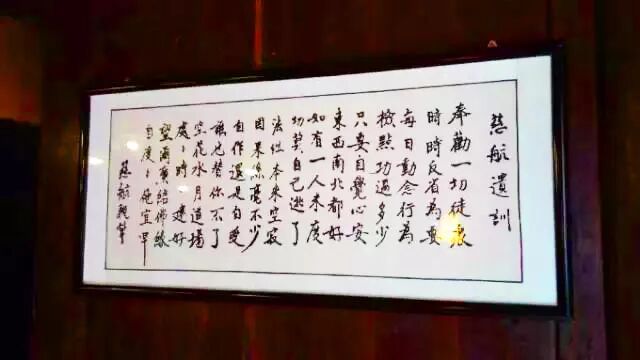 慈航遺訓
奉勸一切徒眾
時時反省為要
每日動念行為
檢點功過多少
只要自覺心安
東西南北都好
如有一人未度
切莫自己逃了
法性本來空寂
因果絲毫不少
自作還是自受
誰也替你不了
空花水月道場
處處時時建好
望爾廣結佛緣
自度度他宜早
慈航親筆